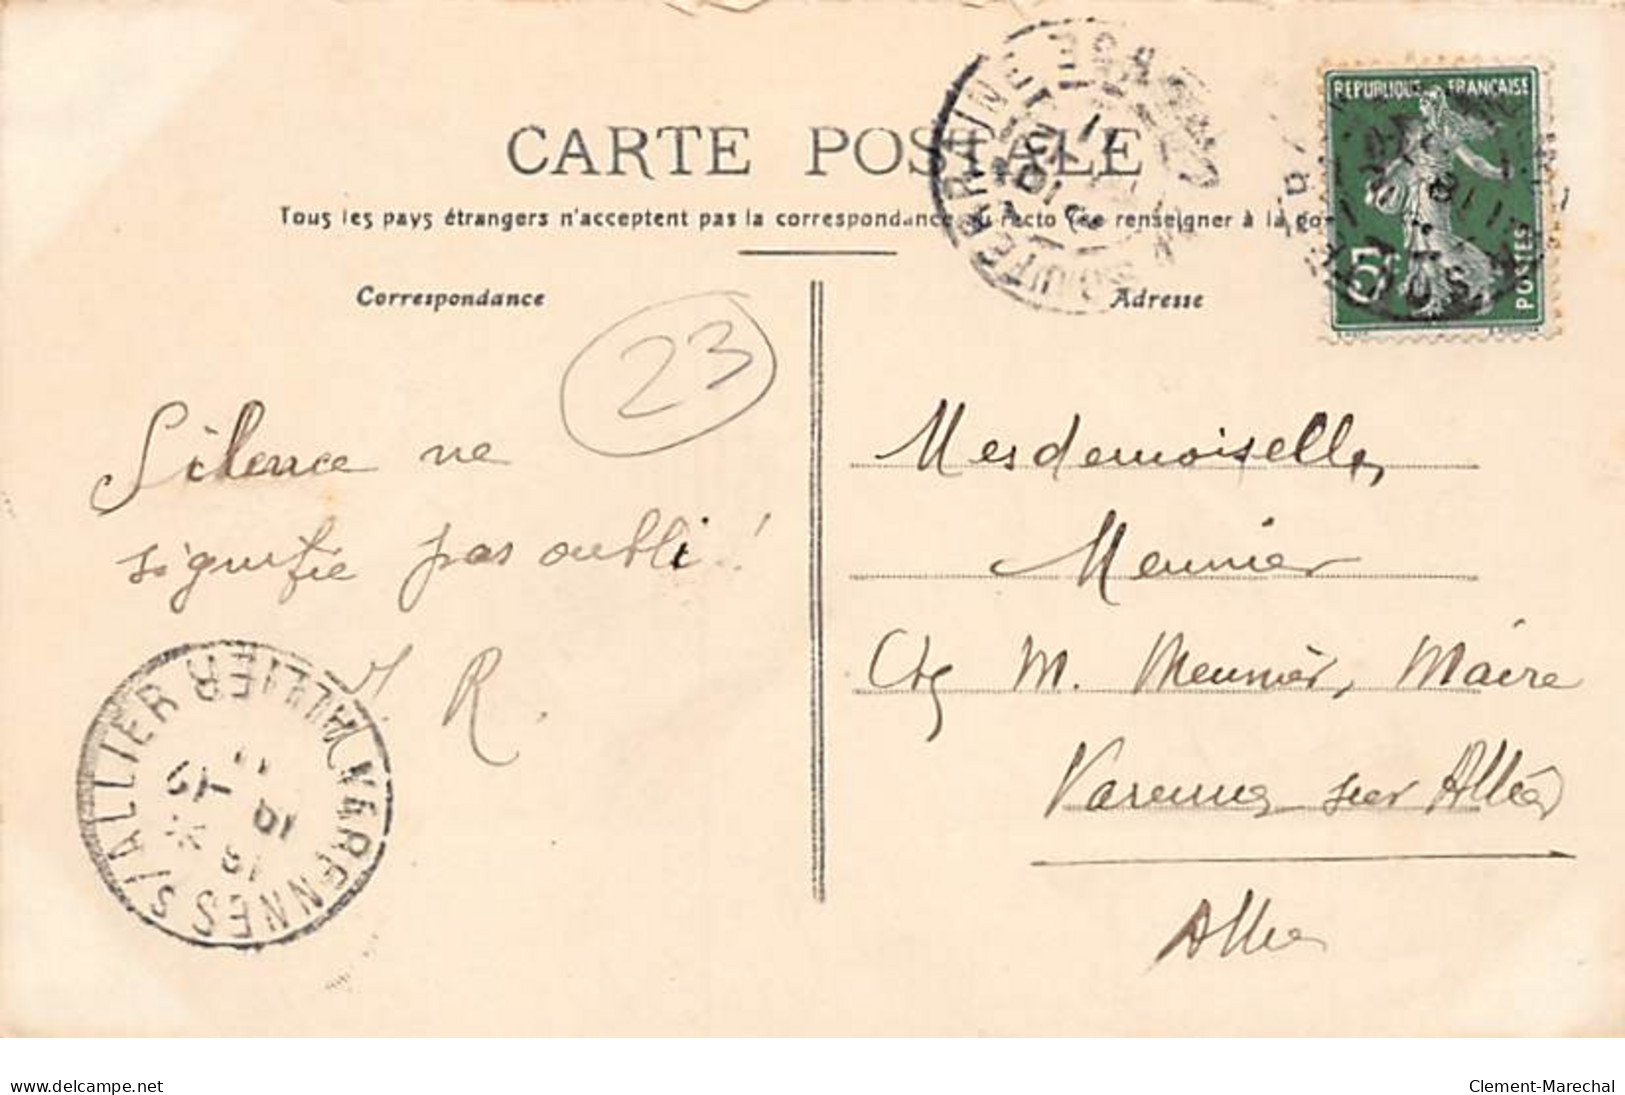 CARTE POSTALE
Tous les pays étrangers n'acceptent pas la correspondance au recto (se renseigner à la po
Correspondance
Adresse
REPUBLIQUE FRANÇAISE
5c
POSTES
23
Silence ne
signifie pas oubli !
R.
Mesdemoiselles
Meunier
Chez M. Meunier, Maire
Varennes sur Allier
Allier
VARENNES S/ALLIER
ALLIER
LA SOUTERRAINE
CREUSE
delcampe.net
Clement-Marechal